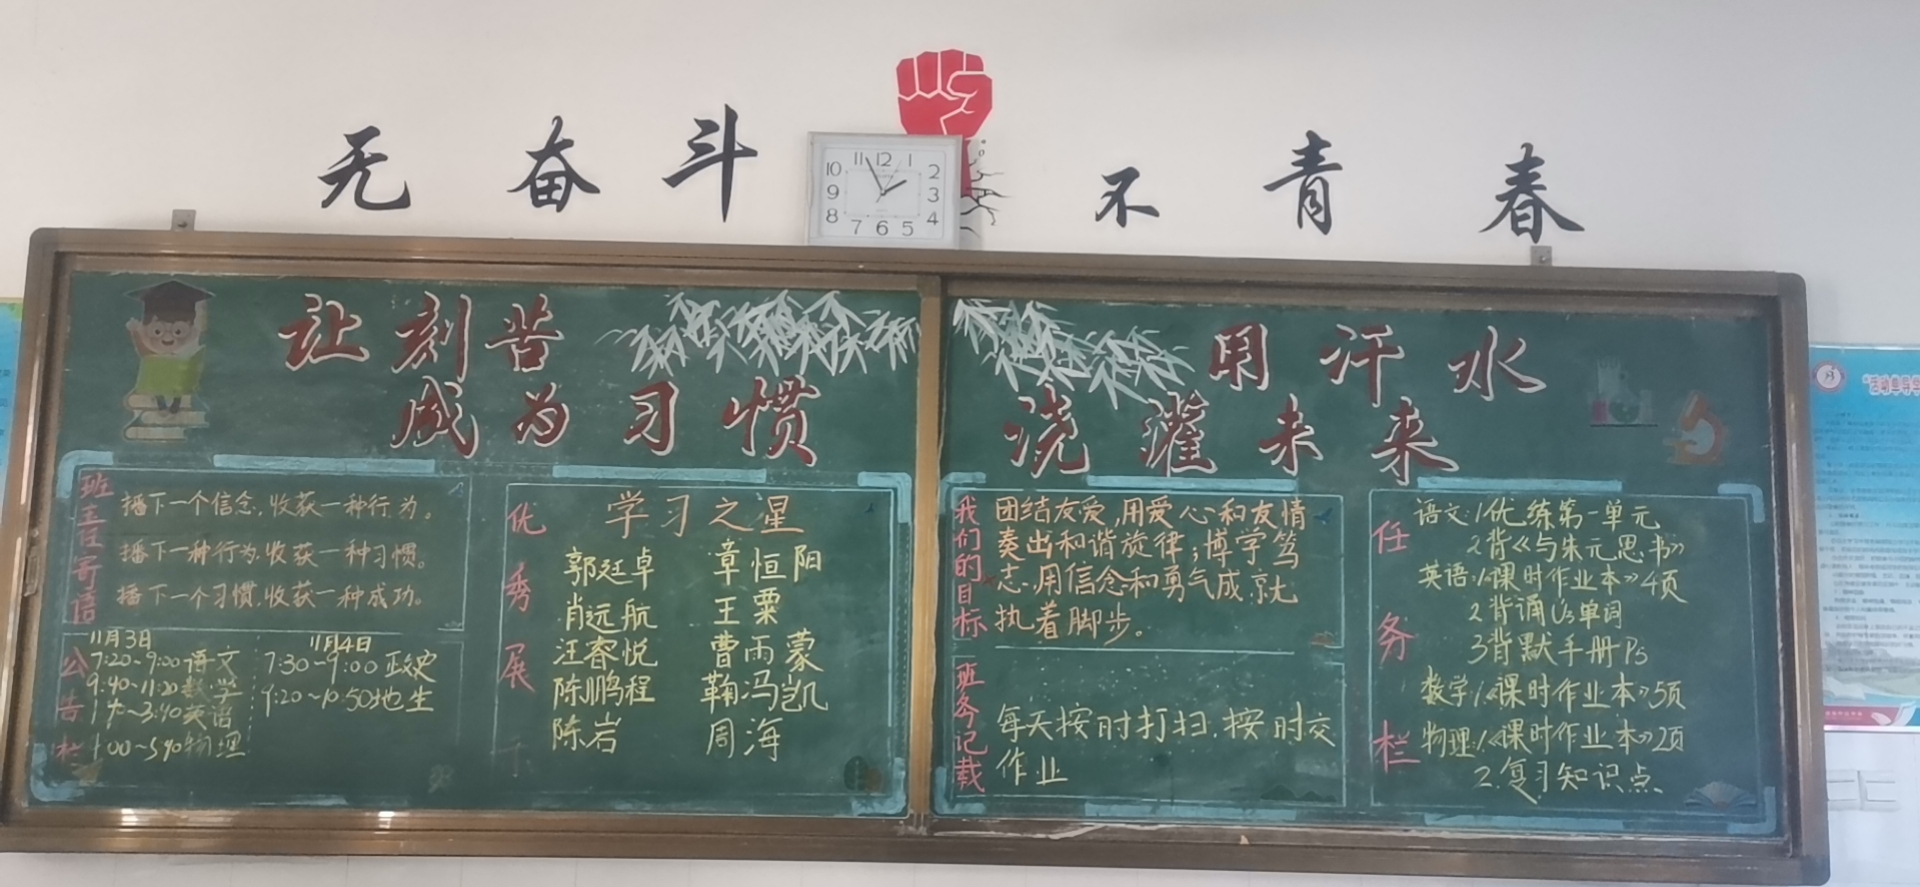 无奋斗 不青春
11 12 1
10 2
9 3
8 4
7 6 5
让刻苦
成为习惯
用汗水
浇灌未来
班主任寄语
播下一个信念,收获一种行为。
播下一种行为,收获一种习惯。
播下一个习惯,收获一种成功。
公告栏
11月3日
7:20~9:00语文
9:40~11:20数学
~3:40英语
:00~5:40物理
11月4日
7:30~9:00政史
9:20~10:50地生
优秀展示
学习之星
郭廷卓 章恒阳
肖远航 王粟
汪睿悦 曹雨蒙
陈鹏程 鞠冯凯
陈岩 周海
我们的目标
团结友爱,用爱心和友情
奏出和谐旋律;博学笃
志,用信念和勇气成就
执着脚步。
班务记载
每天按时打扫,按时交
作业
任务栏
语文:1优练第一单元
2背《与朱元思书》
英语:1《课时作业本》4页
2背诵U3单词
3背默手册P5
数学:1《课时作业本》5页
物理:1《课时作业本》2页
2.复习知识点
"活动单导学